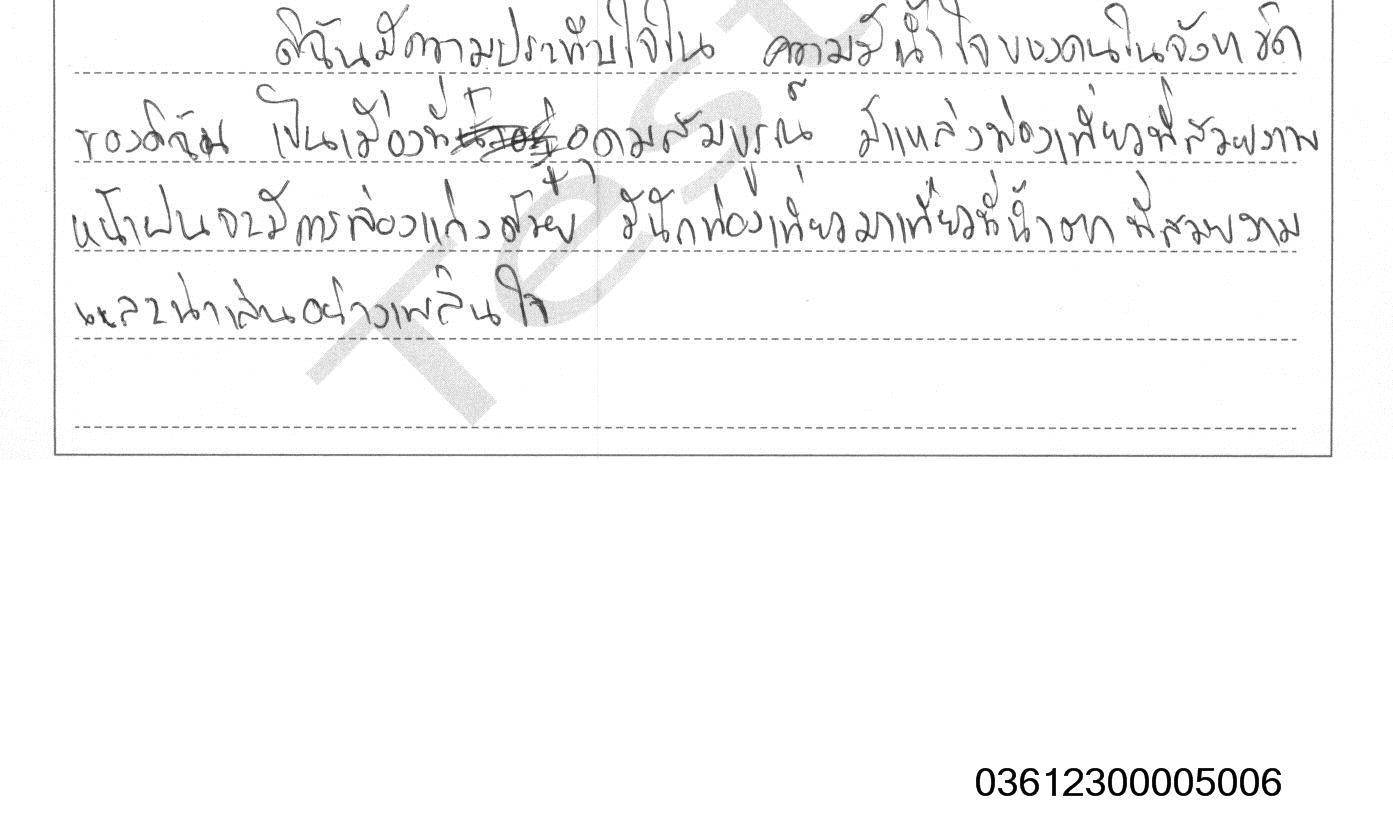 ดิฉันมีความประทับใจใน ความมีน้ำใจของคนในจังหวัด
ของดิฉัน เป็นเมืองที่อุดมสมบูรณ์ มีแหล่งท่องเที่ยวที่สวยงาม
หน้าฝนจะมีการล่องแก่งด้วย มีนักท่องเที่ยวมาเที่ยวที่น้ำตก ที่สวยงาม
และน่าเล่นอย่างเพลินใจ
Test
03612300005006